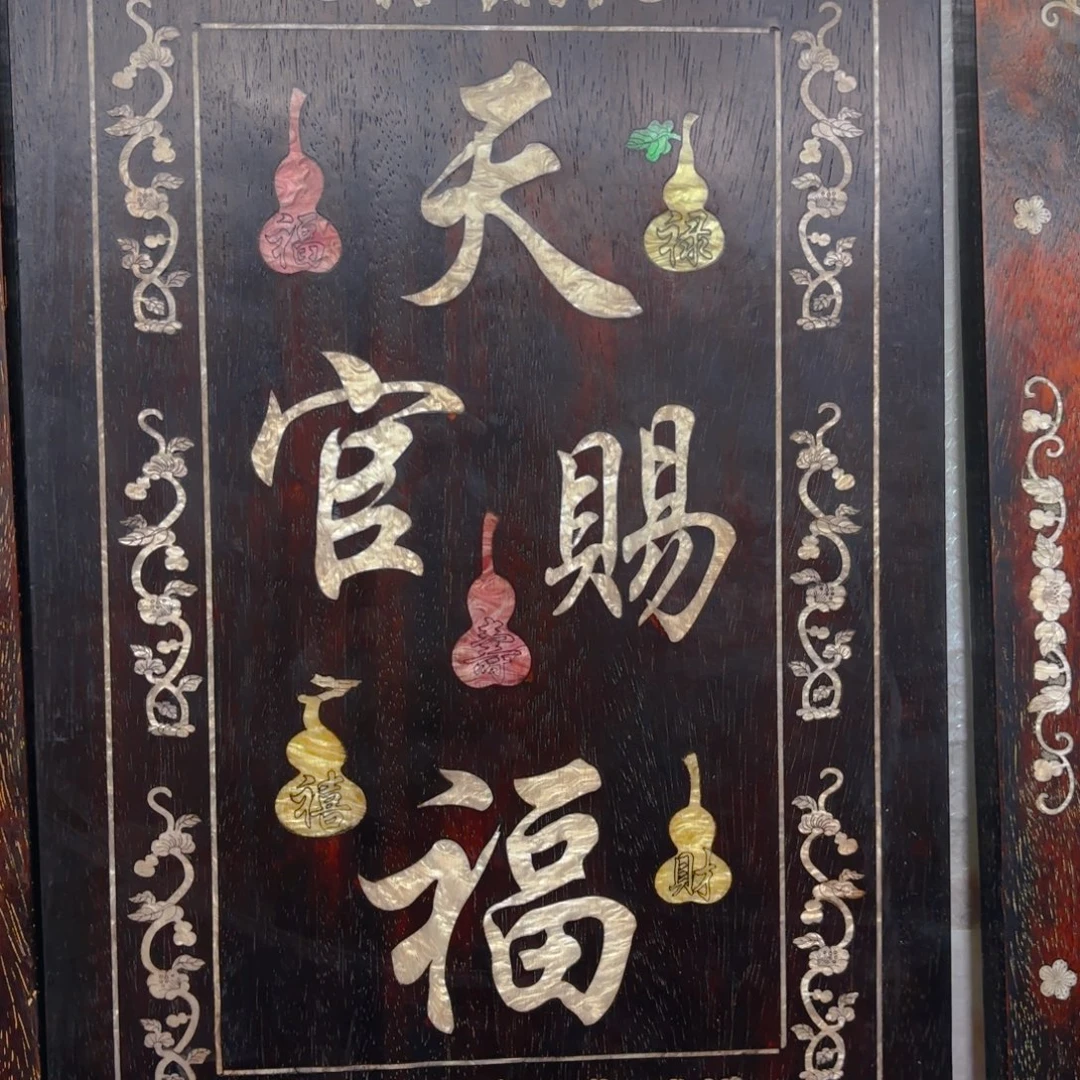 天
福 禄
官 賜
壽
禧 財
福